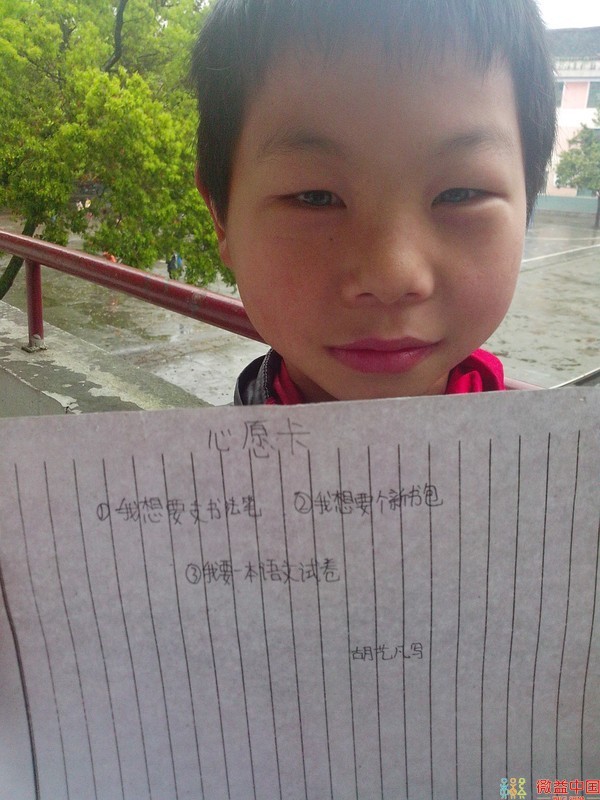 心愿卡
①我想要支书法笔 ②我想要个新书包
③我要一本语文试卷
胡艺凡写
微益中国